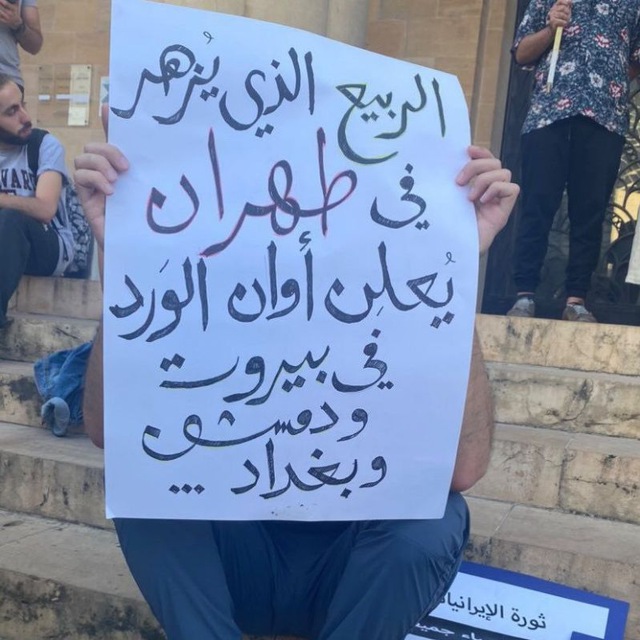 الربيع الذي يُزهر
في طهران
يُعلِن أوان الوَرد
في بيروت
ودمشق
وبغداد ...
ثورة الإيرانيا